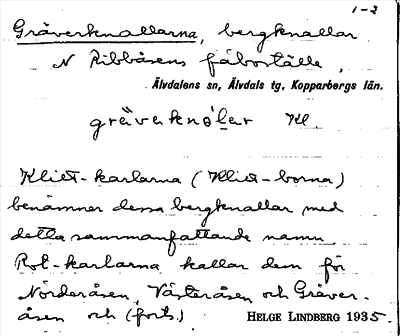 1-2
Gräverknallarna, bergknallar
N Ribbåsens fäboställe,
Älvdalens sn, Älvdals tg. Kopparbergs län.
gräv̄aknọ̈lär Kl.
Klitt-karlarna (Klitt-borna)
benämner dessa bergknallar med
detta sammanfattande namn.
Rot-karlarna kallar dem för
Nörderåsen, Västeråsen och Gräver-
åsen och (forts.) HELGE LINDBERG 1935.